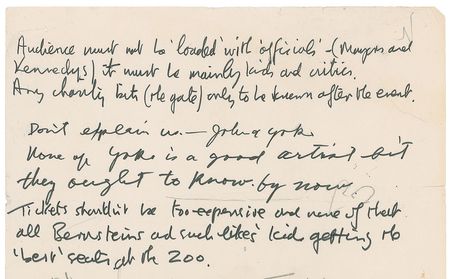 Audience must not be 'loaded' with 'officials' - (Mayors and
Kennedys) it must be mainly kids and critics.
Any charity bits (the gate) only to be known after the event.
Don't explain us. — John & Yoko
None of Yoko is a good artist bit
they ought to know by now.
Tickets shouldn't be too expensive and none of that
all Bernsteins and such likes' kids getting the
'best' seats at the Zoo.